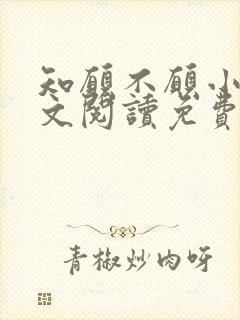 知願不願小
文閱讀免費
青椒炒肉呀